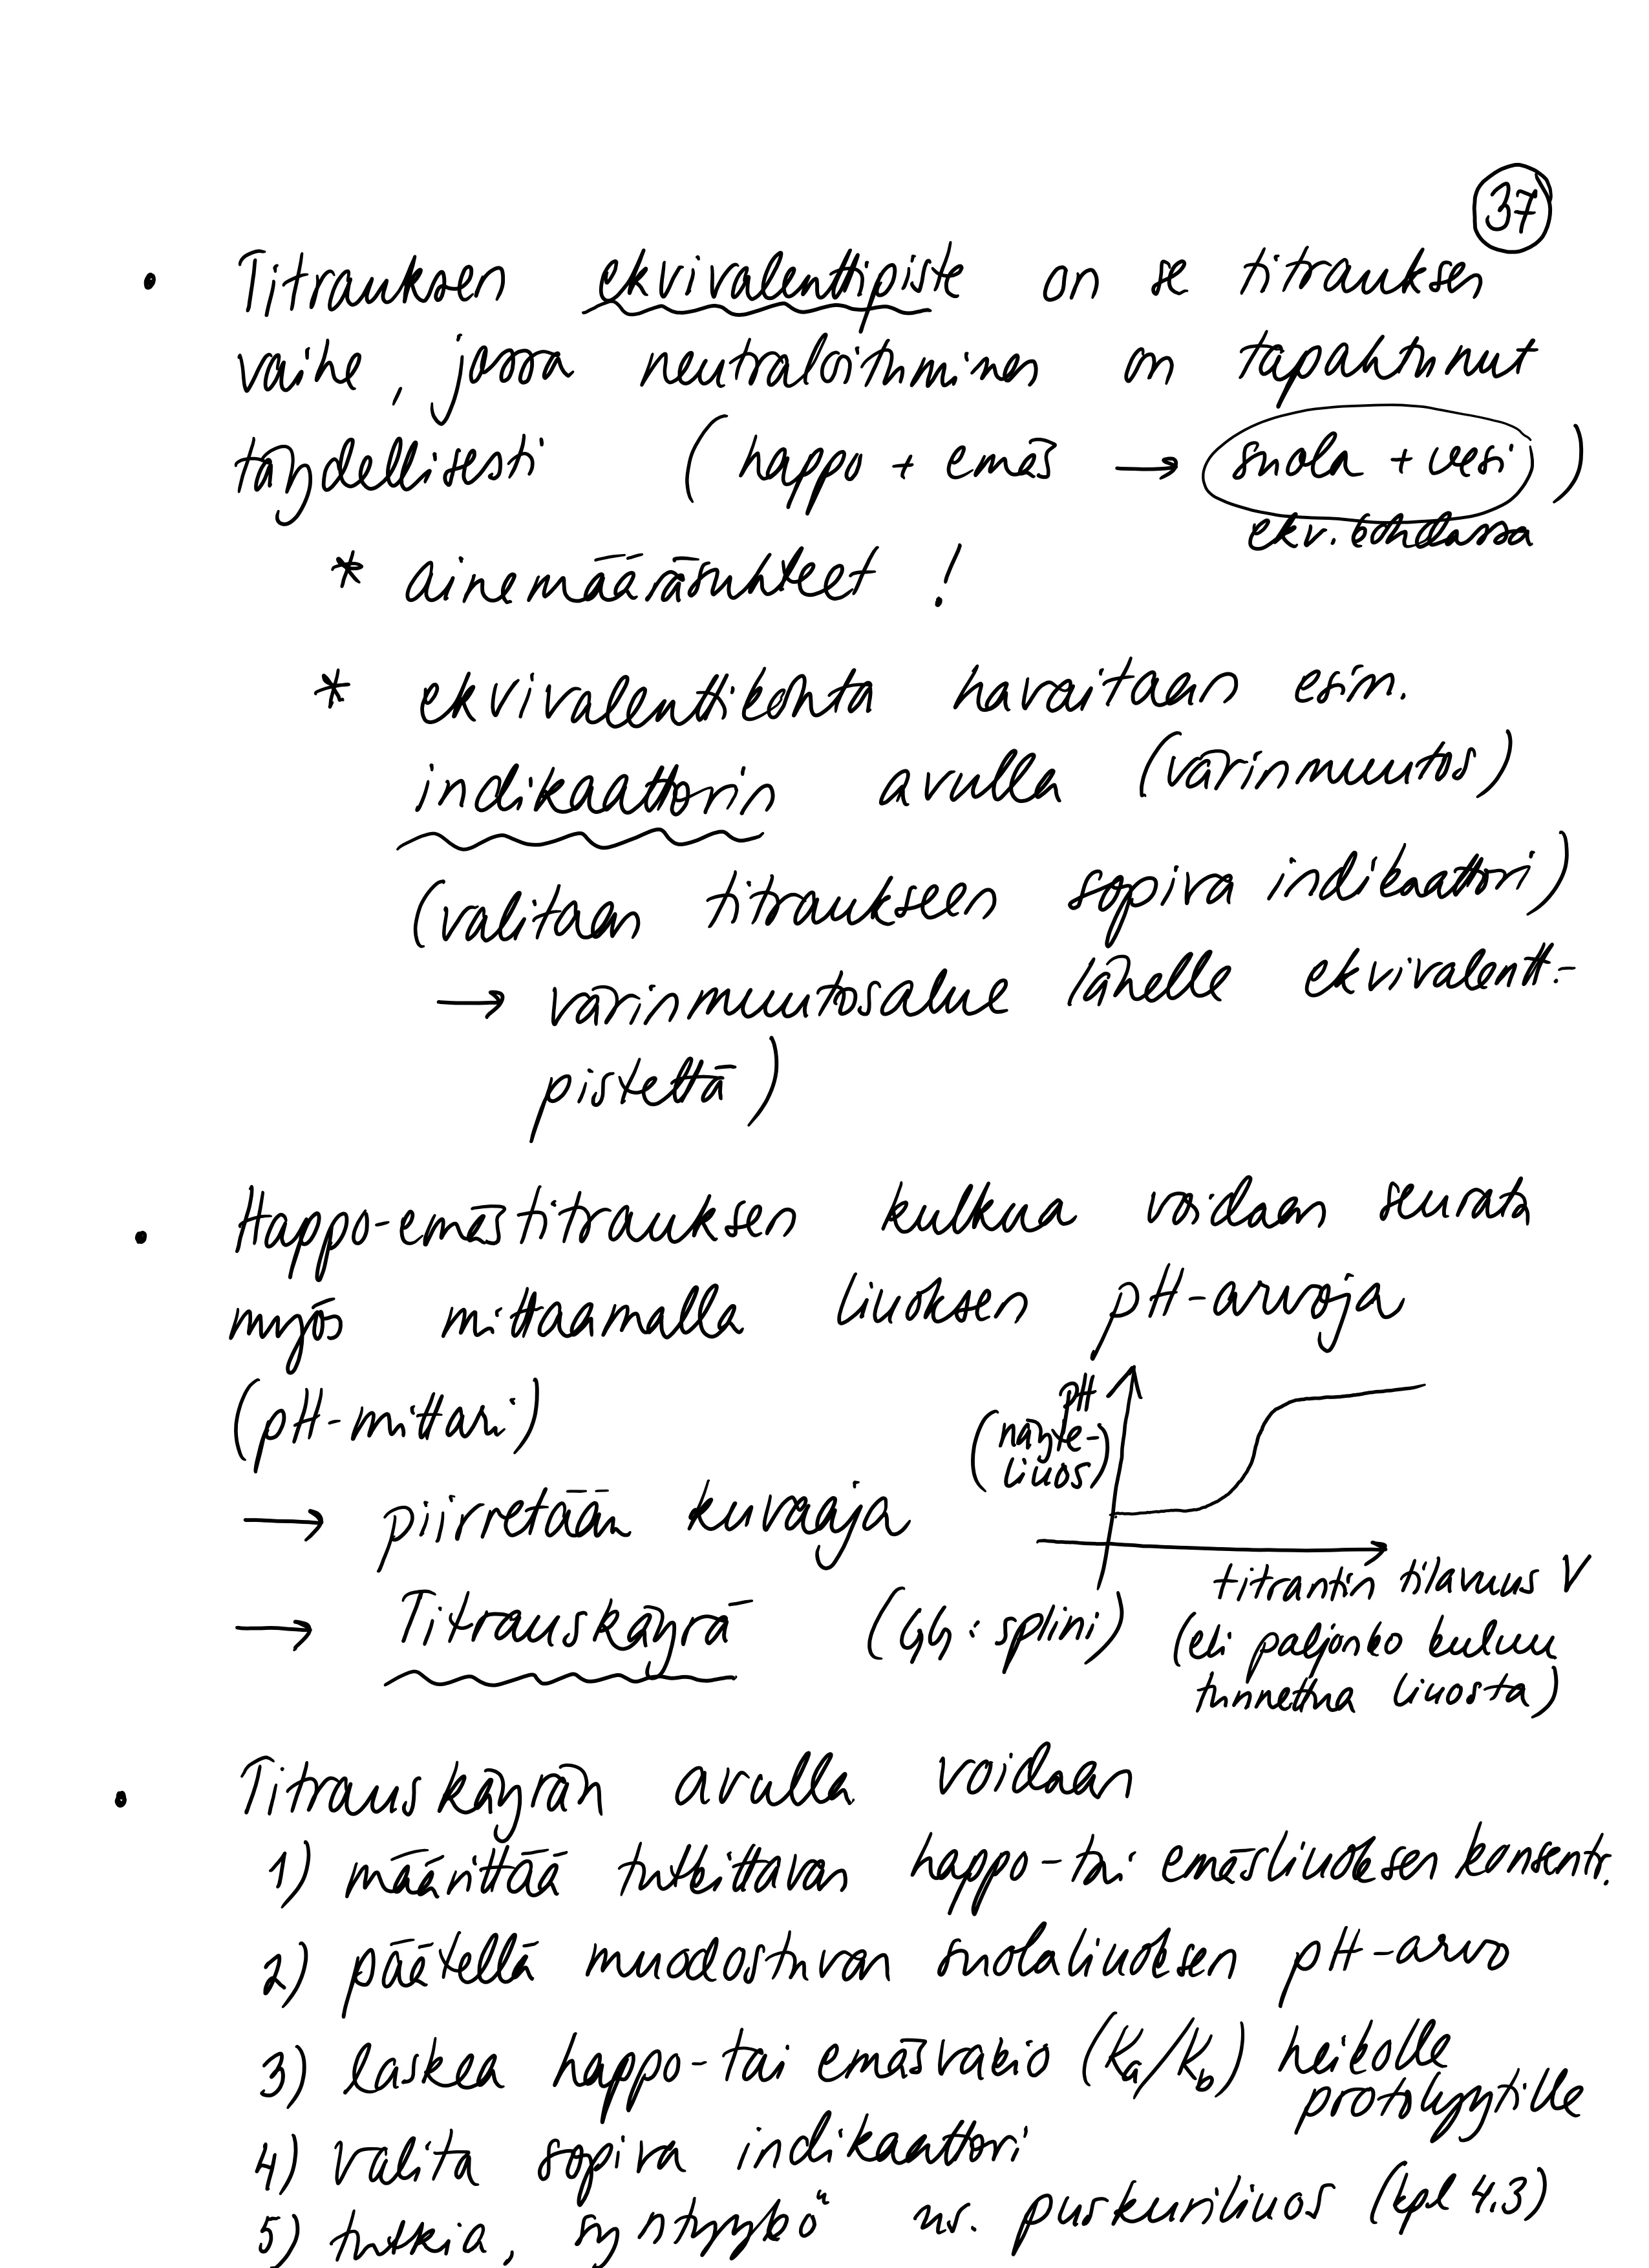 37
• Titrauksen ekvivalenttipiste on se titrauksen
vaihe, jossa neutraloituminen on tapahtunut
täydellisesti (happo + emäs → suola + vesi)
ekv. kohdassa
* ainemääräsuhteet !
* ekvivalenttikohta havaitaan esim.
indikaattorin avulla (värinmuutos)
(valitaan titraukseen sopiva indikaattori)
→ värinmuutosalue lähelle ekvivalentt.-
pistettä)
• Happo-emästitrauksen kulkua voidaan seurata
myös mittaamalla liuoksen pH-arvoja
(pH-mittari)
pH
(näyte-
liuos)
→ piirretään kuvaaja
titrantin tilavuus V
(eli paljonko kuluu
tunnettua liuosta)
→ Titrauskäyrä (GG: splini)
• Titrauskäyrän avulla voidaan
1) määrittää tutkittavan happo-tai emäsliuoksen konsentr.
2) päätellä muodostuvan suolaliuoksen pH-arvo
3) laskea happo-tai emäsvakio (Ka/Kb) heikolle
protolyytille
4) valita sopiva indikaattori
5) tutkia, syntyykö ns. puskuriliuos (kpl 4.3)